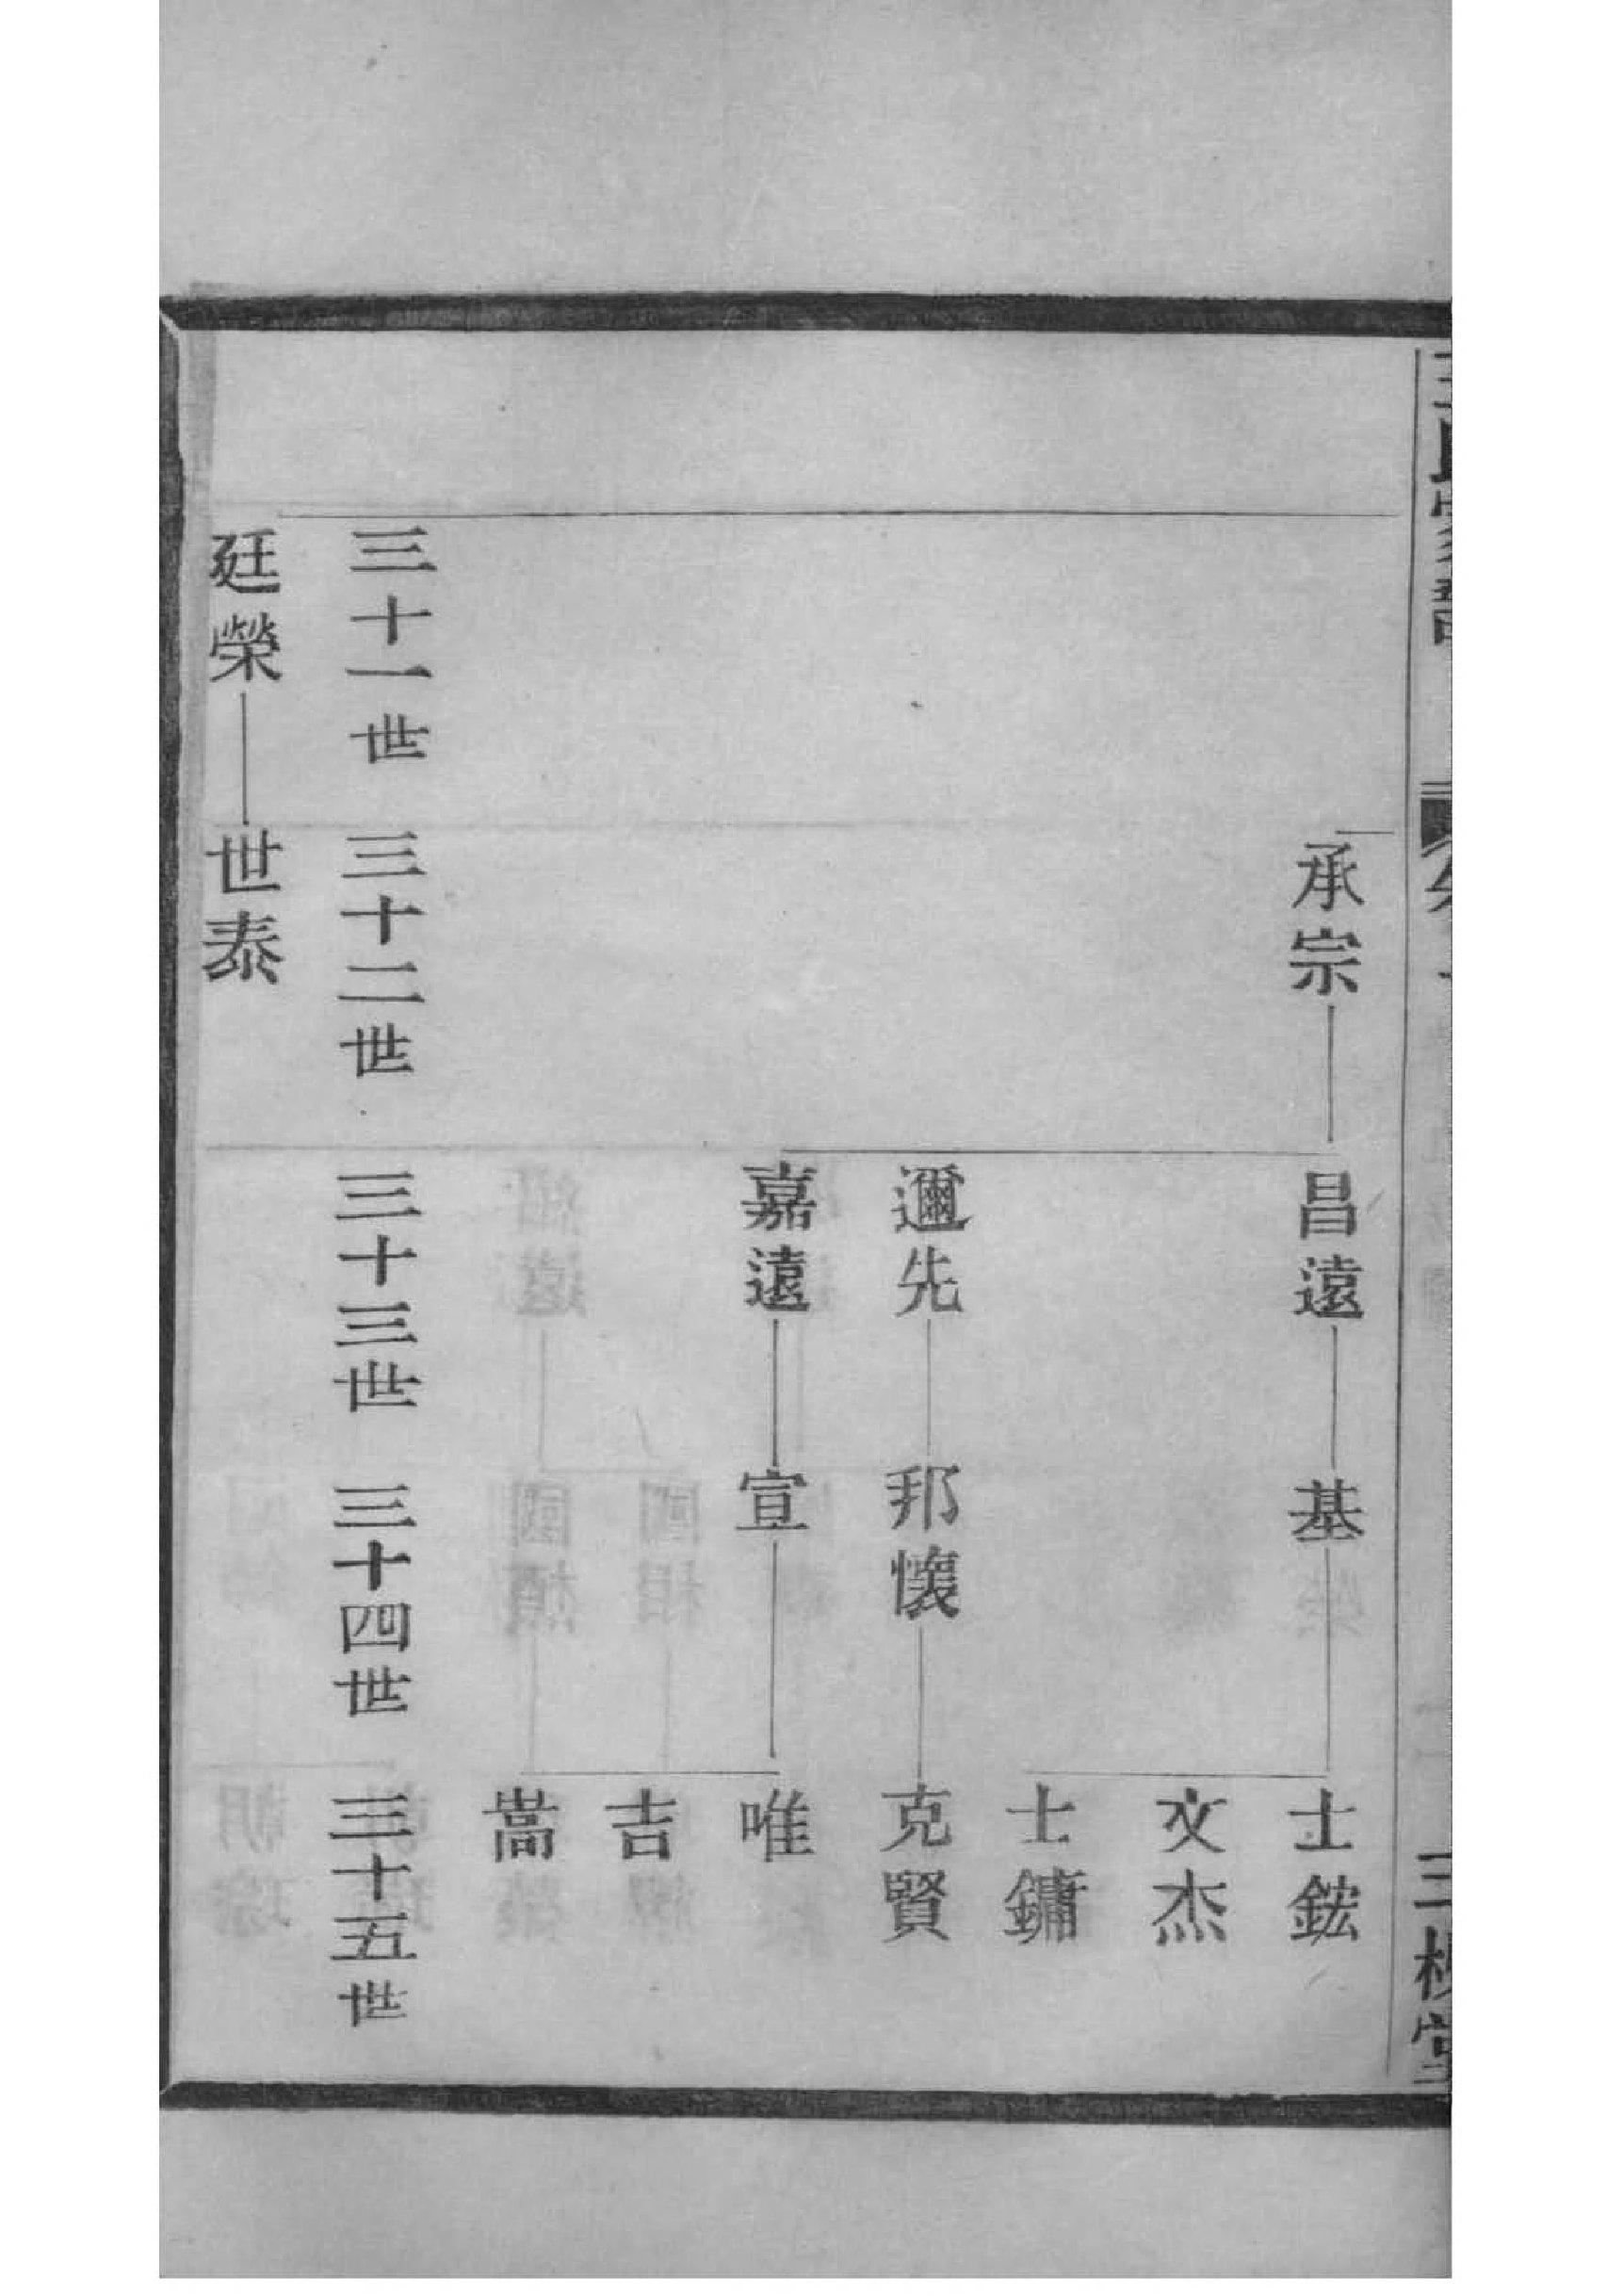 王氏家譜
卷
三槐堂
承宗
昌遠
基
士鋐
文杰
士鏞
邇先
邦懷
克賢
嘉遠
宣
唯
吉
嵩
三十一世
三十二世
三十三世
三十四世
三十五世
廷榮
世泰